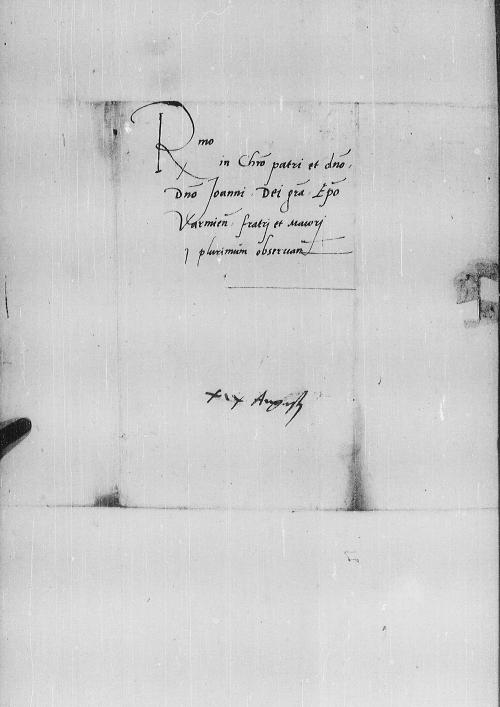 Rmo
in Chro patri et dno.
Dno Joanni Dei gra. Epo
Varmien. fratri et maiori
plurimum observan
xix Augusti